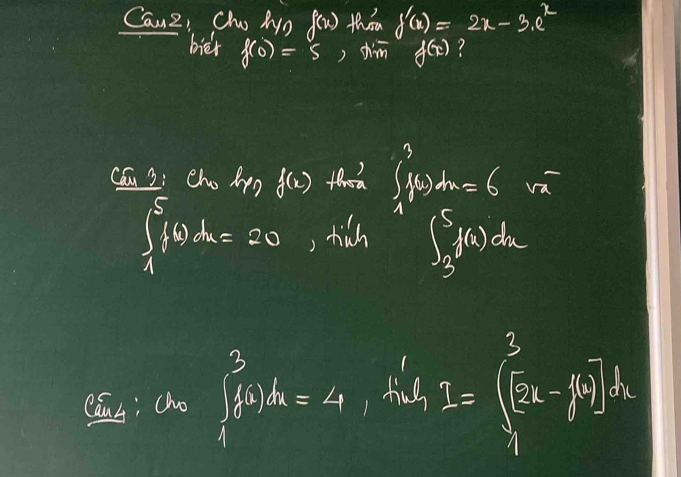 Câu 2: Cho hàm f(x) thỏa f'(x) = 2x - 3.e^x
biết f(0) = 5, tìm f(x)?
Câu 3: Cho hàm f(x) thỏa ∫_1^3 f(x)dx = 6 và
∫_1^5 f(x)dx = 20, tính ∫_3^5 f(x)dx
Câu 4: Cho ∫_1^3 f(x)dx = 4, tính I = ∫_1^3 [2x - f(x)]dx